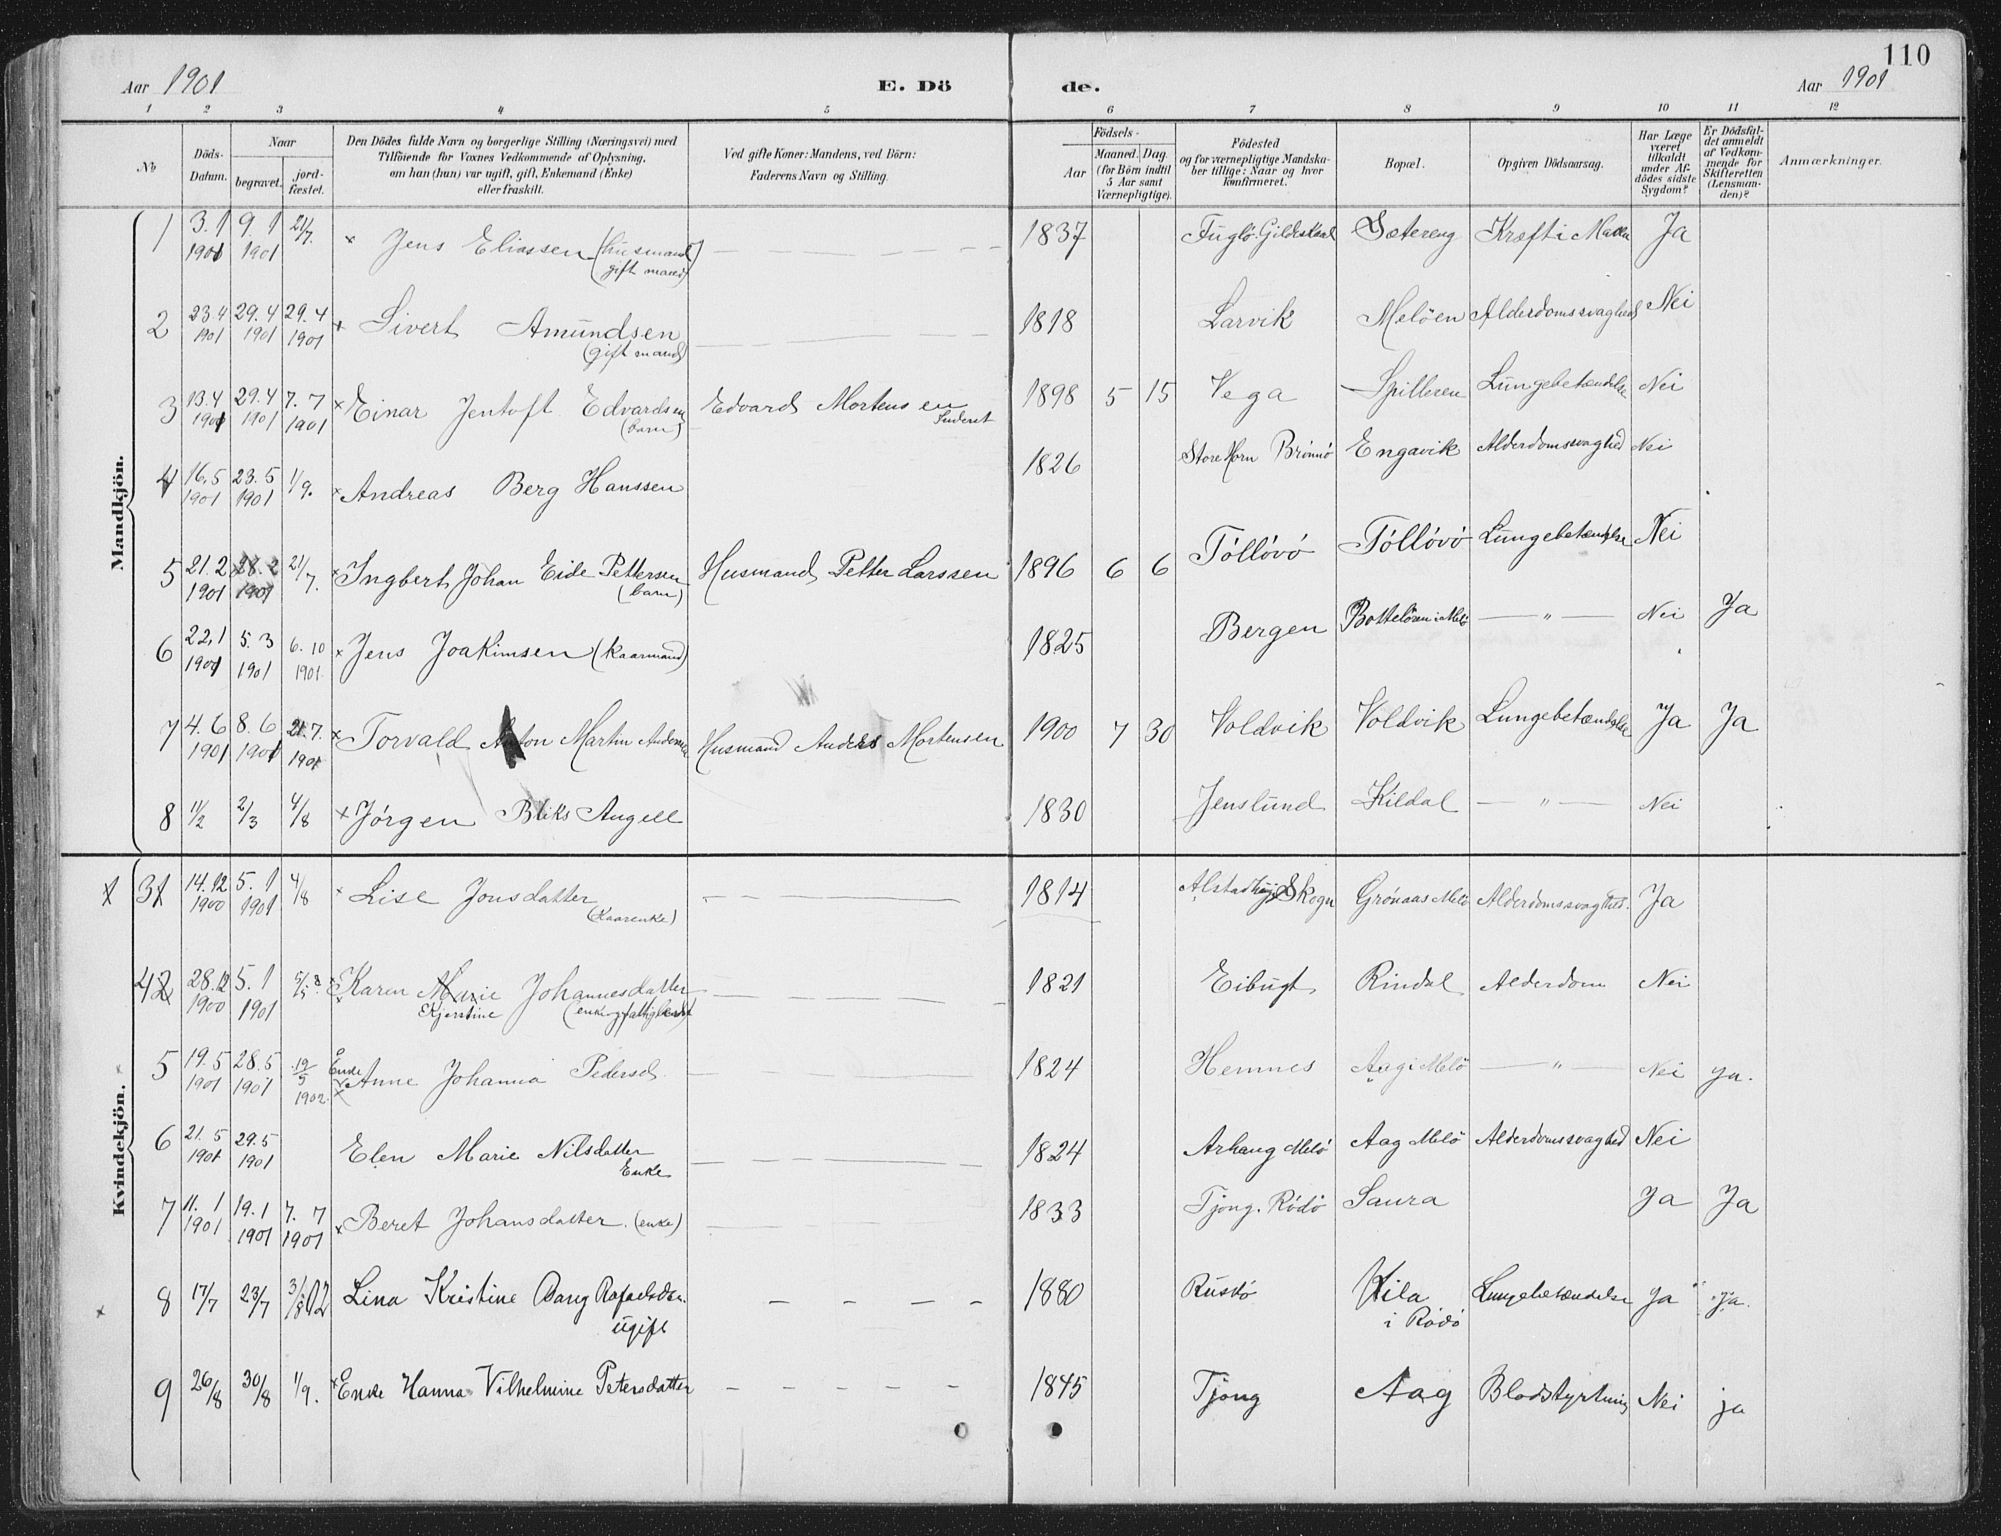 110
Aar 1901 E. Dö de. Aar 1901
1 2 3 4 5 6 7 8 9 10 11 12
№ Döds-Datum. Naar begravet. jord-fæstet. Den Dödes fulde Navn og borgerlige Stilling (Næringsvei) med Tilföiende for Voxnes Vedkommende af Oplysning, om han (hun) var ugift, gift, Enkemand (Enke) eller fraskilt. Ved gifte Koner: Mandens, ved Börn: Faderens Navn og Stilling. Födsels- Aar Maaned. Dag. (for Börn indtil 5 Aar samt Værnepligtige). Födested og for værnepligtige Mandska-ber tillige: Naar og hvor konfirmeret. Bopæl. Opgiven Dödsaarsag. Har Læge været tilkaldt under Af-dödes sidste Sygdom? Er Dödsfal-det anmeldt af Vedkom-mende for Skifteretten (Lensman-den)? Anmærkninger.
Mandkjön.
1 3.1 1901 9.1 1901 21/7. × Jens Eliassen (husmand gift mand) 1837 Fuglö. Gildeskaal Sætereng Kræft i Maven Ja
2 23.4 1901 29.4 1901 29.4 1901 × Sivert Amundsen (gift mand) 1818 Larvik Melöen Alderdomssvaghed Nei
3 13.4 1901 29.4 1901 7.7 1901 × Einar Jentoft Edvardsen (barn) Edvard Mortensen 1898 5 15 Vega Spilleren Lungebetændelse Nei
4 16.5 1901 23.5 1901 1/9. × Andreas Berg Hanssen 1826 Store Horn Brönnö Engavik Alderdomssvaghed Nei
5 21.2 1901 28.2 1901 21/7. × Ingbert Johan Eide Pettersen (barn) Husmand Petter Larssen 1896 6 6 Töllövö Töllövö Lungebetændelse Nei
6 22.1 1901 5.3 1901 6.10 1901. × Jens Joakimsen (kaarmand) 1825 Bergen Bottelören i Melö — " — Nei Ja
7 4.6 1901 8.6 1901 21.7. 1901 × Torvald Anton Martin Andersen Husmand Anders Mortensen 1900 7 30 Voldvik Voldvik Lungebetændelse Ja Ja
8 11/2 2/3 4/8 × Jörgen Bliks Angell 1830 Jenslund Kildal — " — Nei
Kvindekjön.
1 31 14.12 1900 5.1 1901 4/8 × Lise Jonsdatter (Kaarenke) 1814 Alstadhaug Skogn Grönaas Melö Alderdomssvaghed. Ja
42 28.12 1900 5.1 1901 × Karen Marie Johannesdatter Kjerstine 1821 Eibugt Rindal Alderdom Nei
5 19.5 1901 28.5 1901 19/5 1902. Enke × Anne Johanna Pedersd. 1824 Hemnes Aag i Melö — " — Nei ja.
6 21.5 1901 29.5 1901 Elen Marie Nilsdatter Enke 1824 Arhaug Melö Aag Melö Alderdomssvaghed Nei
7 11.1 1901 19.1 1901 7.7 1901 × Beret Johansdatter. (enke) 1833 Tjong. Rödö Saura Ja Ja
× 8 17/7 23/7 3/8 02 Lina Kristine Dang Rafaelsdtr. ugift 1880 Rusdö Kila i Rödö Lungebetændelse Ja ja.
9 26/8 30/8 1/9. × Enke Hanna Vilhelmine Petersdatter 1845 Tjong Aag Blodstyrtning Nei ja